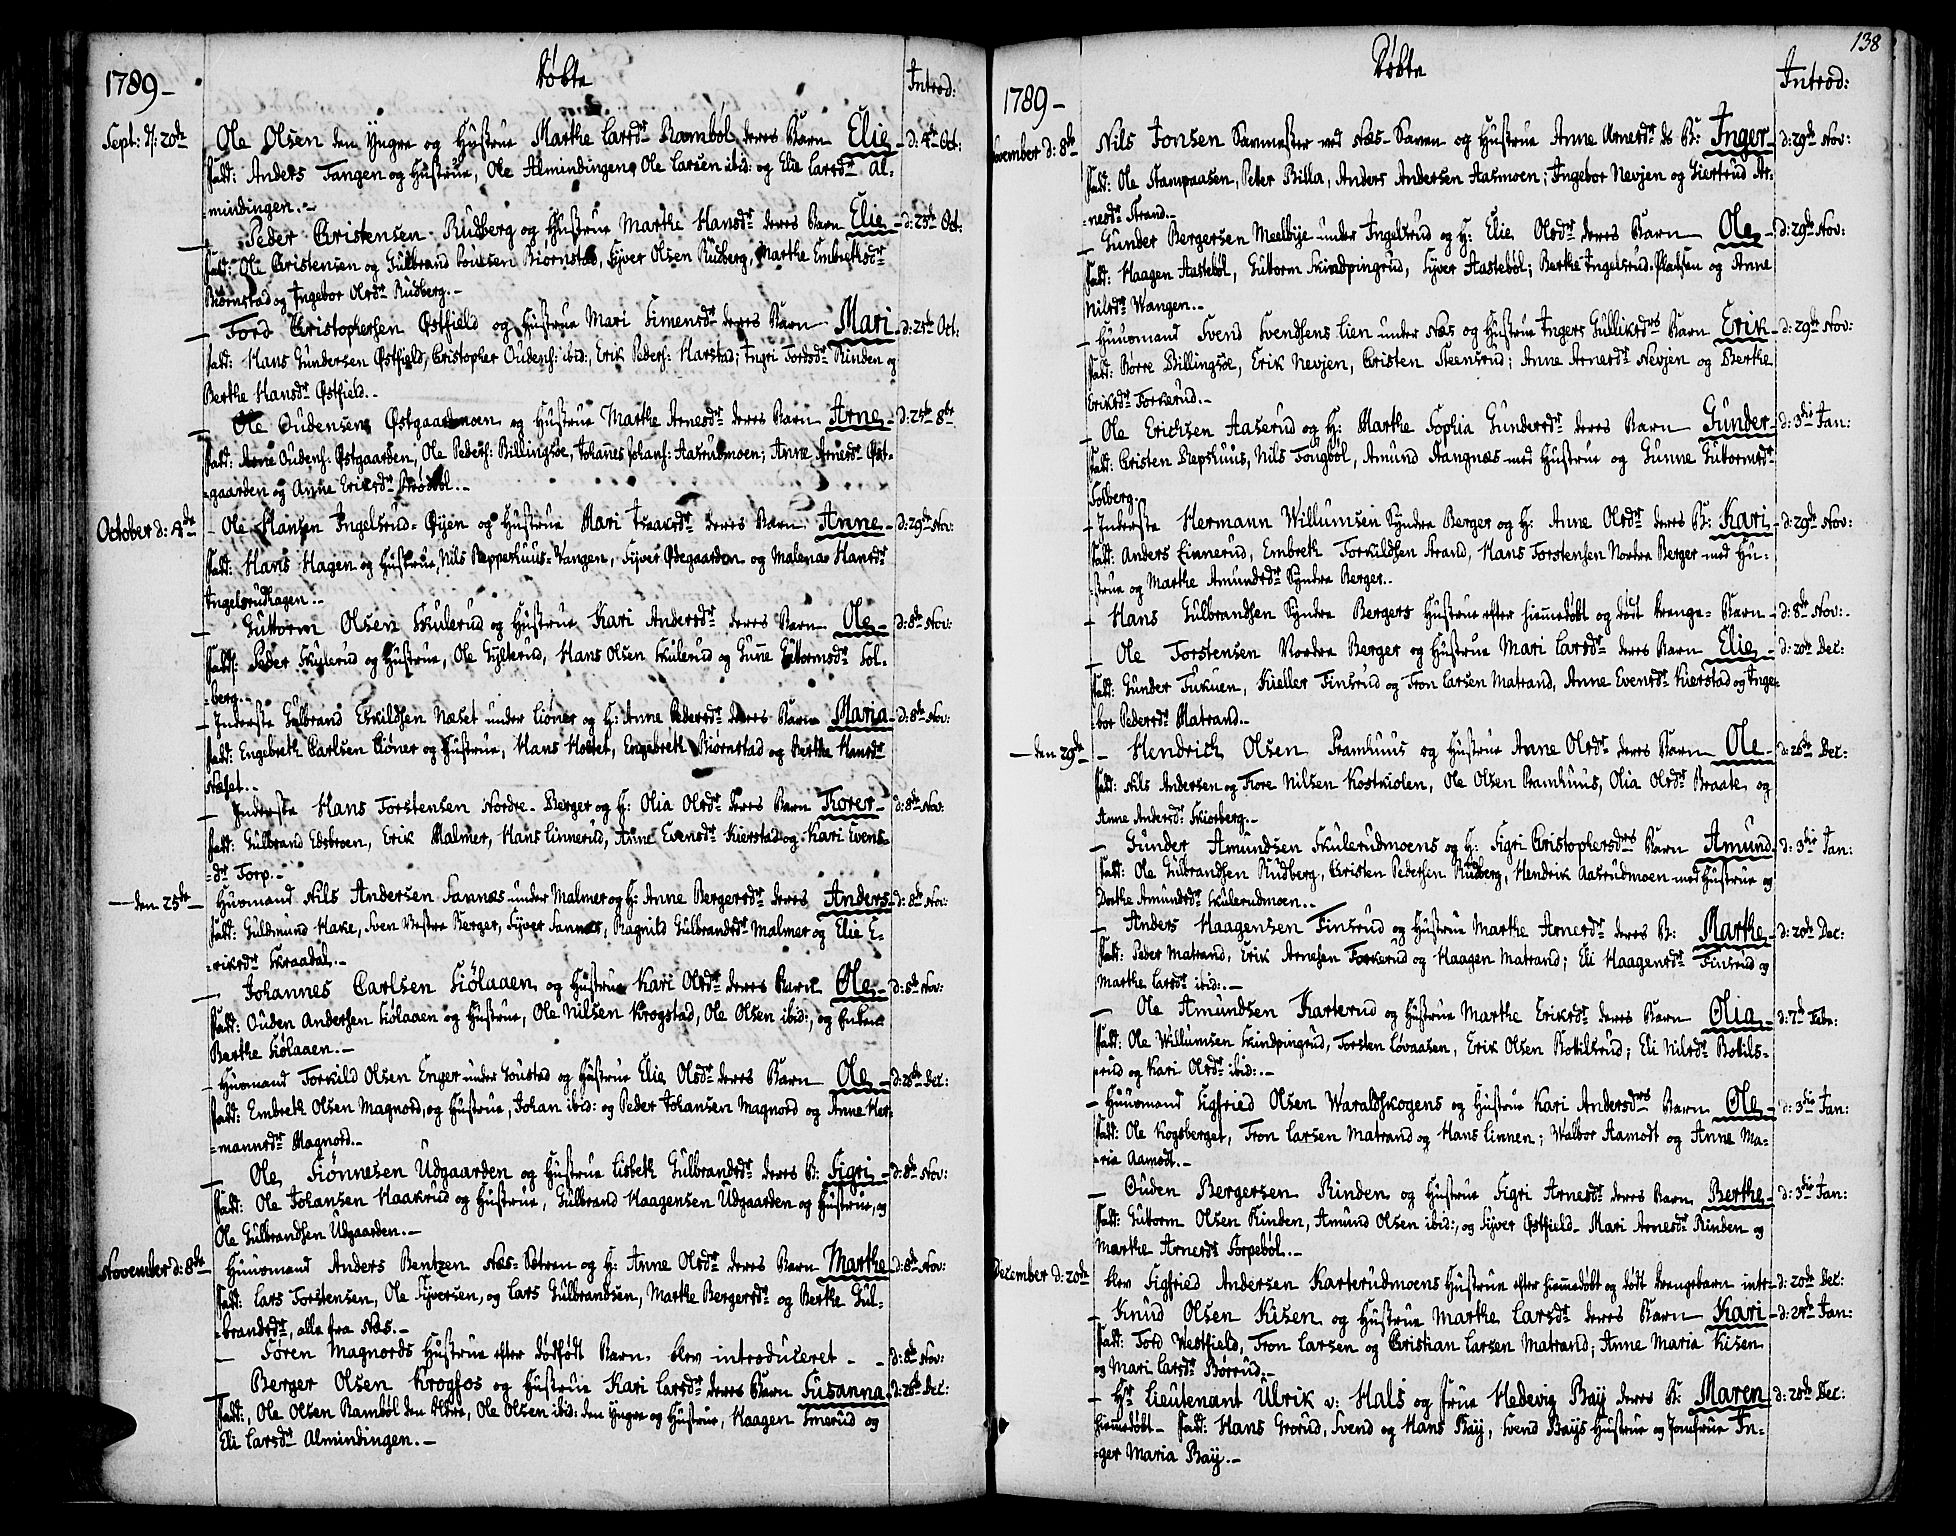 1789 –
Døbte
Introd:
Sept: d: 20de
Ole Olsen den Yngre og Hustrue Marthe Larsdr Rambøl deres Barn Elie – d: 4de Oct:
Fadd: Anders Tangen og Hustrue, Ole Almindingen, Ole Larsen ibid: og Elie Larsdr Al-
=mindingen. –
– Peder Christensen Rudberg og Hustrue Marthe Hansdr deres Barn Elie – d: 25de Oct:
Fadd: Ole Christensen og Gulbrand Biørnstad, Syver Olsen Rudberg, Marthe Embrethsdr
Biørnstad og Ingebor Olsdr Rudberg. –
– Tord Christophersen Østfield og Hustrue Mari Simensdr deres Barn Mari – d: 25de Oct:
Fadd: Hans Gundersen Østfield, Christopher Oudens: ibid:, Erik Peders: Harstad; Ingri Tordsdr Rinden og
Berthe Hansdr Østfield. –
– Ole Oudensen Østgaardmoen og Hustrue Marthe Arnesdr deres Barn Arne – d: 25de 8br
Fadd: Arne Oudens: Østgaarden, Ole Peders: Billingsøe, Johanes Johans: Aasrudmoen; Anne Arnesdr Øst-
=gaarden og Anne Eriksdr Brødbøl. –
October d: 4de
– Ole Hansen Ingelsrud-Øyen og Hustrue Mari Isaacsdr deres Barn Anne – d: 29de Nov:
Fadd: Hans Hagen og Hustrue, Nils Reppehuus-Vangen, Syver Ødegaarden og Malena Hansdr
Ingelsrudhagen. –
– Guttorm Olsen Skulerud og Hustrue Kari Andersdr deres Barn Ole – d: 8de Nov:
Fadd: Peder Skulerud og Hustrue, Ole Gylterud, Hans Olsen Skulerud og Gunne Guttormsdr Sol-
=berg. –
– Inderste Gulbrand Eskildsen Næset under Liøner og H: Anne Pedersdr deres Barn Maria – d: 8de Nov:
Fadd: Engebreth Carlsen Liøner og Hustrue, Hans Holtet, Engebreth Biørnstad og Berthe Hansdr
Næset. –
– Inderste Hans Torstensen Nordre-Berger og H: Olia Olsdr deres Barn Torer – d: 8de Nov:
Fadd: Gulbrand Edsbroen, Erik Malmer, Hans Linnerud, Anne Evensdr Kierstad og Kari Evens-
=dr Torp. –
– den 25de –
Huusmand Nils Andersen Sannæs under Malmer og H: Anne Bergersdr deres Anders – d: 8de Nov:
Fadd: Guldmund Hake, Sven Vestre Berger, Syver Sannæs, Ragnild Gulbrandsdr Malmer og Elie E-
=riksdr Skraadal. –
– Johannes Carlsen Siølaaen og Hustrue Kari Olsdr deres Barn Ole – d: 8de Nov:
Fadd: Ouden Andersen Siølaaen og Hustrue, Ole Nilsen Krogstad, Ole Olsen ibid:, og Enken
Berthe Siølaaen. –
– Huusmand Torkild Olsen Enger under Joustad og Hustrue Elie Olsdr deres Barn Ole – d: 26de Dec:
Fadd: Embreth Olsen Magnord, og Hustrue, Johan ibid: og Peder Johansen Magnord og Anne Her-
=mannsdr Magnord. –
– Ole Siønnesen Udgaarden og Hustrue Lisbeth Gulbrandsdr deres B: Sigri – d: 8de Nov:
Fadd: Ole Johansen Haakrud og Hustrue, Gulbrand Haagensen Udgaarden og Hustrue, og
Ole Gulbrandsen Udgaarden. –
November d: 8de –
Huusmand Anders Bentzen Næs-Sætren og H: Anne Olsdr deres Barn Marthe d: 8de Nov:
Fadd: Lars Torstensen, Ole Syversen, og Lars Gulbrandsen, Marthe Bergersdr og Berthe Gul-
=brandsdr, alle fra Næs. –
– Søren Magnords Hustrue efter dødfødt Barn blev introduceret – – d: 8de Nov:
– Berger Olsen Krogfos og Hustrue Kari Larsdr deres Barn Susanna d: 26de Dec:
Fadd:, Ole Olsen Rambøl den Ældre, Ole Olsen ibid: den Yngre og Hustrue, Haagen Smerud og
Eli Larsdr Almindingen. –
138
1789 –
Døbte
Introd:
November d: 8de
Nils Jonsen Savmester ved Næs-Saven og Hustrue Anne Arnesdr ds B: Inger – d: 29de Nov:
Fadd: Ole Stampaasen, Peter Billa, Anders Andersen Aasmoen; Ingebor Nevjen og Siertrud Ar-
=nesdr Strand. –
– Gunder Bergersen Meelbye under Ingelsrud og H: Elie Olsdr deres Barn Ole – d: 29de Nov:
Fadd: Haagen Aastebøl, Guttorm Skindpingrud, Syver Aastebøl; Berthe Ingelsrud-Pladsen og Anne
Nilsdr Wangen. –
– Huusmand Svend Svendsens Lien under Næs og Hustrue Ingers Gulliksdrs Barn Erik – d: 29de Nov:
Fadd: Børre Billingsøe, Erik Nevjen, Christen Steensrud; Anne Arnesdr Nevjen og Berthe
Eriksdr Torkerud. –
– Ole Erichsen Aaserud og H: Marthe Sophia Gundersdr deres Barn Gunder – d: 3die Jan:
Fadd: Christen Repshuus, Nils Tongbøl, Amund Stangnæs med Hustrue og Gunne Guttormsdr
Solberg. –
– Inderste Hermann Willumsen Syndre Berger og H: Anne Olsdr deres B: Kari – d: 29de Nov:
Fadd: Anders Linnerud, Embreth Torkildsen Strand, Hans Torstensen Nordre Berger med Hu-
=strue og Marthe Amundsdr Syndre Berger. –
– Hans Gulbrandsen Syndre Bergers Hustrue efter hiemmedøbt og dødt Drenge-Barn – d: 8de Nov: –
– Ole Torstensen Nordre Berger og Hustrue Mari Larsdr deres Barn Elie – d: 20de Dec:
Fadd: Gunder Tukuen, Kieller Finsrud og Tron Larsen Matrand, Anne Evensdr Kierstad og Inge-
bor Pedersdr Matrand. –
– den 29de –
– Hendrich Olsen Pramhuus og Hustrue Anne Olsdr deres Barn Ole – d: 26de Dec:
Fadd: Nils Andersen og Tore Nilsen Kostkiolen, Ole Olsen Pramhuus, Olia Olsdr Braate og
Anne Andersdr Skiørberg. –
– Gunder Amundsen Skulerudmoens og H: Sigri Christophersdrs Barn Amund – d: 3die Jan:
Fadd: Ole Gulbrandsen Rudberg, Christen Pedersen Rudberg, Hendrik Aasrudmoen med Hustrue og
Dorthe Amundsdr Skulerudmoen. –
– Anders Haagensen Finsrud og Hustrue Marthe Arnesdr deres B: Marthe – d: 20de Dec:
Fadd: Peder Matrand, Erik Arnesen Torkerud og Haagen Matrand; Eli Haagensdr Finsrud og
Marthe Larsdr ibid:. –
– Ole Amundsen Karterud og Hustrue Marthe Eriksdr deres Barn Olia – d: 7de Febr:
Fadd: Ole Willumsen Skindpingrud, Torsten Løvaasen, Erik Olsen Botilsrud; Eli Nilsdr Botils-
=rud og Kari Olsdr ibid:. –
– Huusmand Sigfried Olsen Waraldskogens og Hustrue Kari Andersdrs Barn Ole – d: 3die Jan:
Fadd: Ole Kogsberget, Tron Larsen Matrand og Hans Linnen; Walbor Aamodt og Anne Ma-
=ria Aamodt. –
– Ouden Bergersen Rinden og Hustrue Sigri Arnesdr deres Barn Berthe – d: 3die Jan:
Fadd: Guttorm Olsen Rinden, Amund Olsen ibid:, og Syver Østfield – Mari Arnesdr Rinden og
Marthe Arnesdr Torpebøl. –
December d: 20de
blev Sigfried Andersen Karterudmoens Hustrue efter hiemmedøbt og dødt Drengebarn intr – d: 20de Dec:
– Knud Olsen Kisen og Hustrue Marthe Larsdr deres Barn Kari – d: 24de Jan:
Fadd: Tord Westfield, Tron Larsen og Christian Larsen Matrand; Anne Maria Kisen
og Mari Larsdr Børrud. –
– Hr Lieutenant Ulrik v: Hals og Frue Hedevig Bay deres B: Maren – d: 20de Dec:
hiemmedøbt – Fadd: Hans Grorud, Svend og Hans Bay, Svend Bays Hustrue og Jomfrue In-
=ger Maria Bay. –